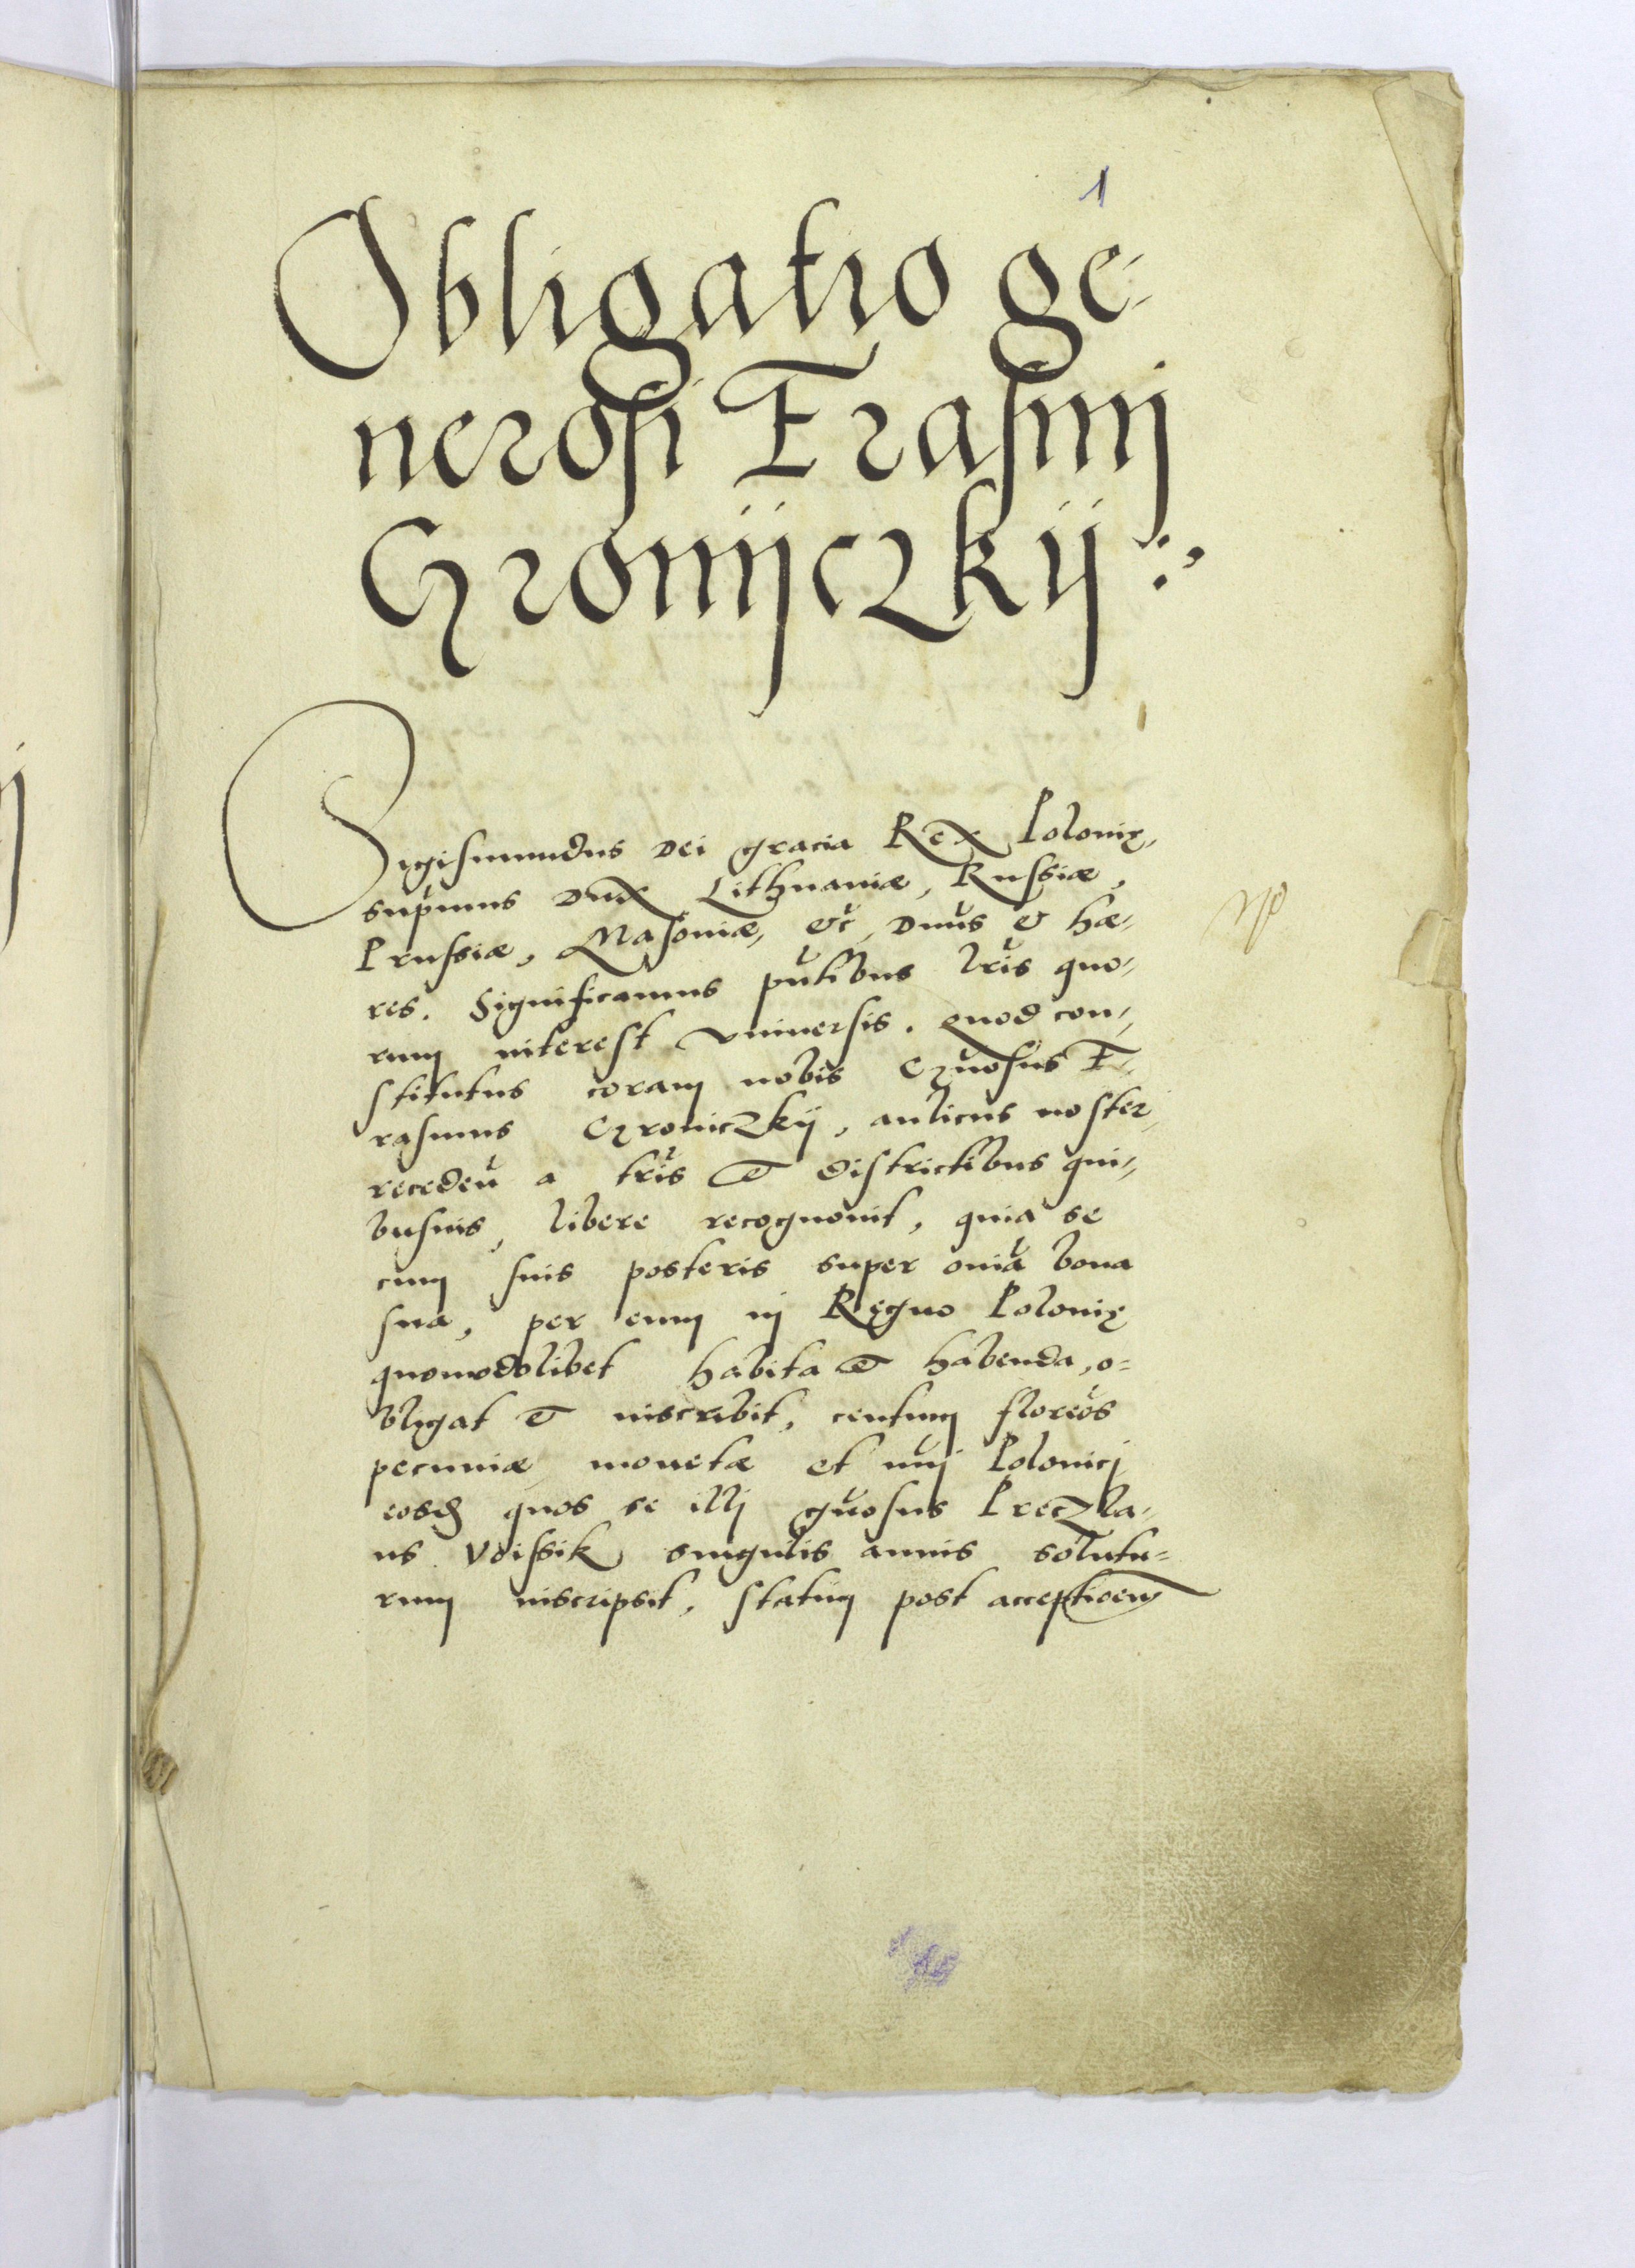 1
Obligatio ge-
nerosi Erasmi
Groniczkij
Sigismundus Dei gracia Rex Polonię,
supmus Dux Lithuaniæ, Russiæ,
Prussiæ, Masoviæ, etc, Dnus & hæ-
res. Significamus pntibus lris quo-
rum interest Universis. Quod con-
stitutus coram nobis Gnosus E-
rasmus Groniczkij, aulicus noster,
receden a tris et districtibus qui-
busvis, libere recognovit, quia se
cum suis posteris super omia bona
sua, per eum in Regno Polonię
quomodolibet habita et habenda, o-
bligat et inscribit, centum florēos
pecuniæ monetæ et nūi Polonici
eosd quos se illi gnosus Preczla-
us Vdissik singulis annis solutu-
rum inscripsit, statim post acceptioem